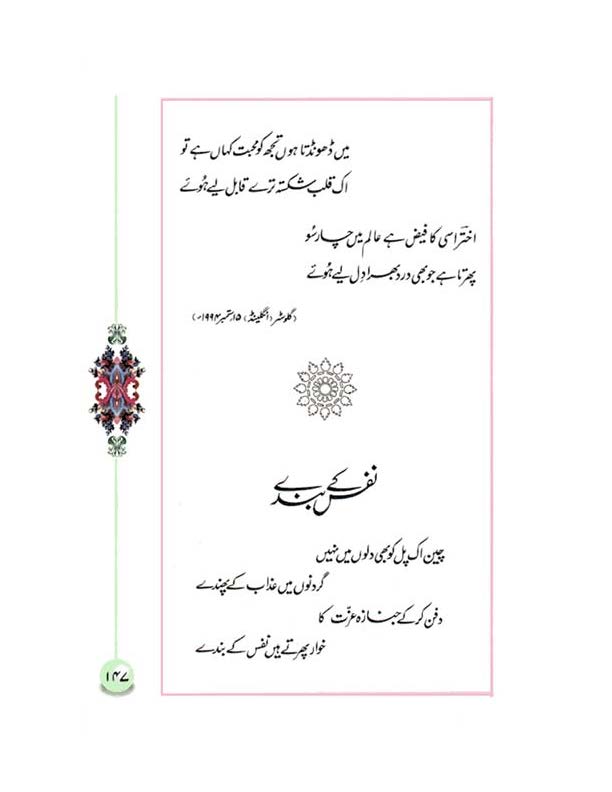 میں ڈھونڈتا ہوں تجھ کو محبت کہاں ہے تو
اک قلب شکستہ ترے قابل لیے ہُوئے
اختر اسی کا فیض ہے عالم میں چار سُو
پھرتا ہے جو بھی درد بھرا دِل لیے ہُوئے
(گلوسٹر (انگلینڈ) ۱۵ ستمبر ۱۹۹۴ء)
نفس کے بندے
چین اک پل کو بھی دلوں میں نہیں
گردنوں میں عذاب کے پھندے
دفن کر کے جنازہ عزّت کا
خوار پھرتے ہیں نفس کے بندے
۱۴۷